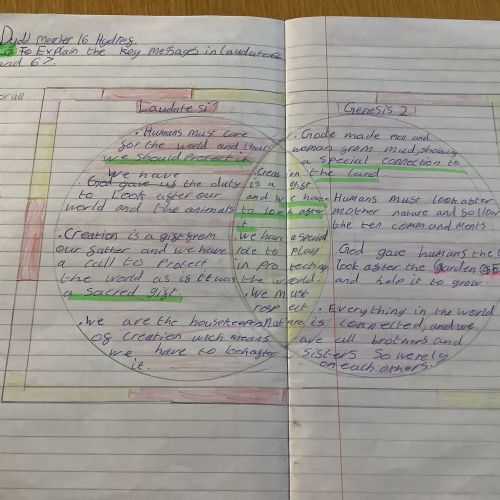 Dydd mercher 16 Hydref
To Explain the key messages in Laudato si
and 6?.
for all
Laudate si
• Humans must care
for the world and that
we should protect it
We have
God gave us the duty
to Look after our
world and the animals
• Creation is a gift from
our father and we have
a call to protect
the world as if it was
a sacred gift
• we are the housekeepers
of creation wich means
we have to lookafter
it.
• Creation
is a gift
and we have
to look after
it
• we have a special
role to play
in protecting
the world.
• we must
respect
Nature
Genesis 2
• Gode made men and
woman from mud, showing
a special connection to
the land
Humans must look after
mother nature and follow
the ten commandments
God gave humans the
look after the Garden of E
and help it to grow
• Everything in the world
is connected, and we
are all brothers and
sisters so we rely
on each others.